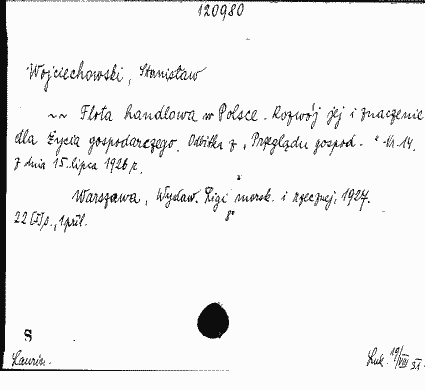 120980
Wojciechowski, Stanisław
~~ Flota handlowa w Polsce. Rozwój jej i znaczenie
dla życia gospodarczego. Odbitka z „Przeglądu gospod." Nr 14.
z dnia 15. lipca 1926 r.
Warszawa, Wydaw. Ligi morsk. i rzecznej, 1927.
8°
22 [I] s., 1 pril.
S
Laurin.
Luk. 19/VIII 51.